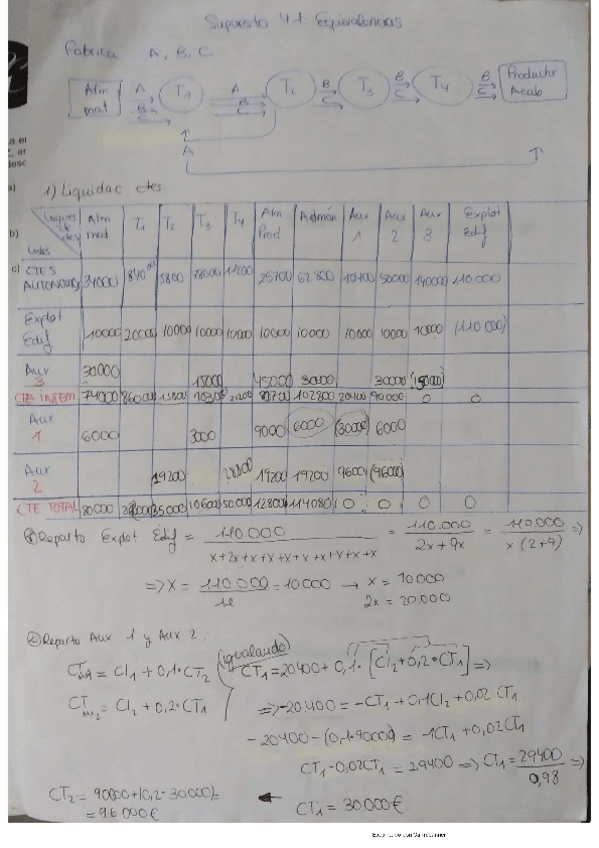 Supuesto 4.1 Equivalencias
Fabrica A, B, C
Alm mat A B C T1 A B C T2 B C T3 B C T4 B C Producto Acab
A
1) Liquidac ctes
Alm mat T1 T2 T3 T4 Alm Prod Admón Aux 1 Aux 2 Aux 3 Explot Edif
CTES AUTONOMOS 34000 5800 11200 25700 62800 10400 50000 140000 110.000
Explot Edif 10000 20000 10000 10000 10000 10000 10000 10000 10000 10000 (110.000)
Aux 3 30000 15000 45000 30000 30000 (150000)
CTE INTERM 74000 102800 20400 90000 0 0
Aux 1 6000 3000 9000 6000 (30000) 6000
Aux 2 19200 19200 19200 9600 (96000)
CTE TOTAL 80000 35000 50000 114080 0 0 0 0
Reparto Explot Edif = 110.000 / x+2x+x+x+x+x+x+x+x+x = 110.000 / 2x+9x = 110000 / x(2+9) =>
=> X = 110.000 / 11 = 10000 → x = 10000
2x = 20.000
Reparto Aux 1 y Aux 2:
(igualando)
CT1 = CI1 + 0,1·CT2
CT1 = 20400 + 0,1·[CI2 + 0,2·CT1] =>
CT2 = CI2 + 0,2·CT1
=> -20400 = -CT1 + 0,1CI2 + 0,02 CT1
-20400 - (0,1·90000) = -1CT1 + 0,02CT1
CT1 - 0,02CT1 = 29400 => CT1 = 29400 / 0,98 =>
CT2 = 90000 + (0,2·30000) =
= 96000€
CT1 = 30000€